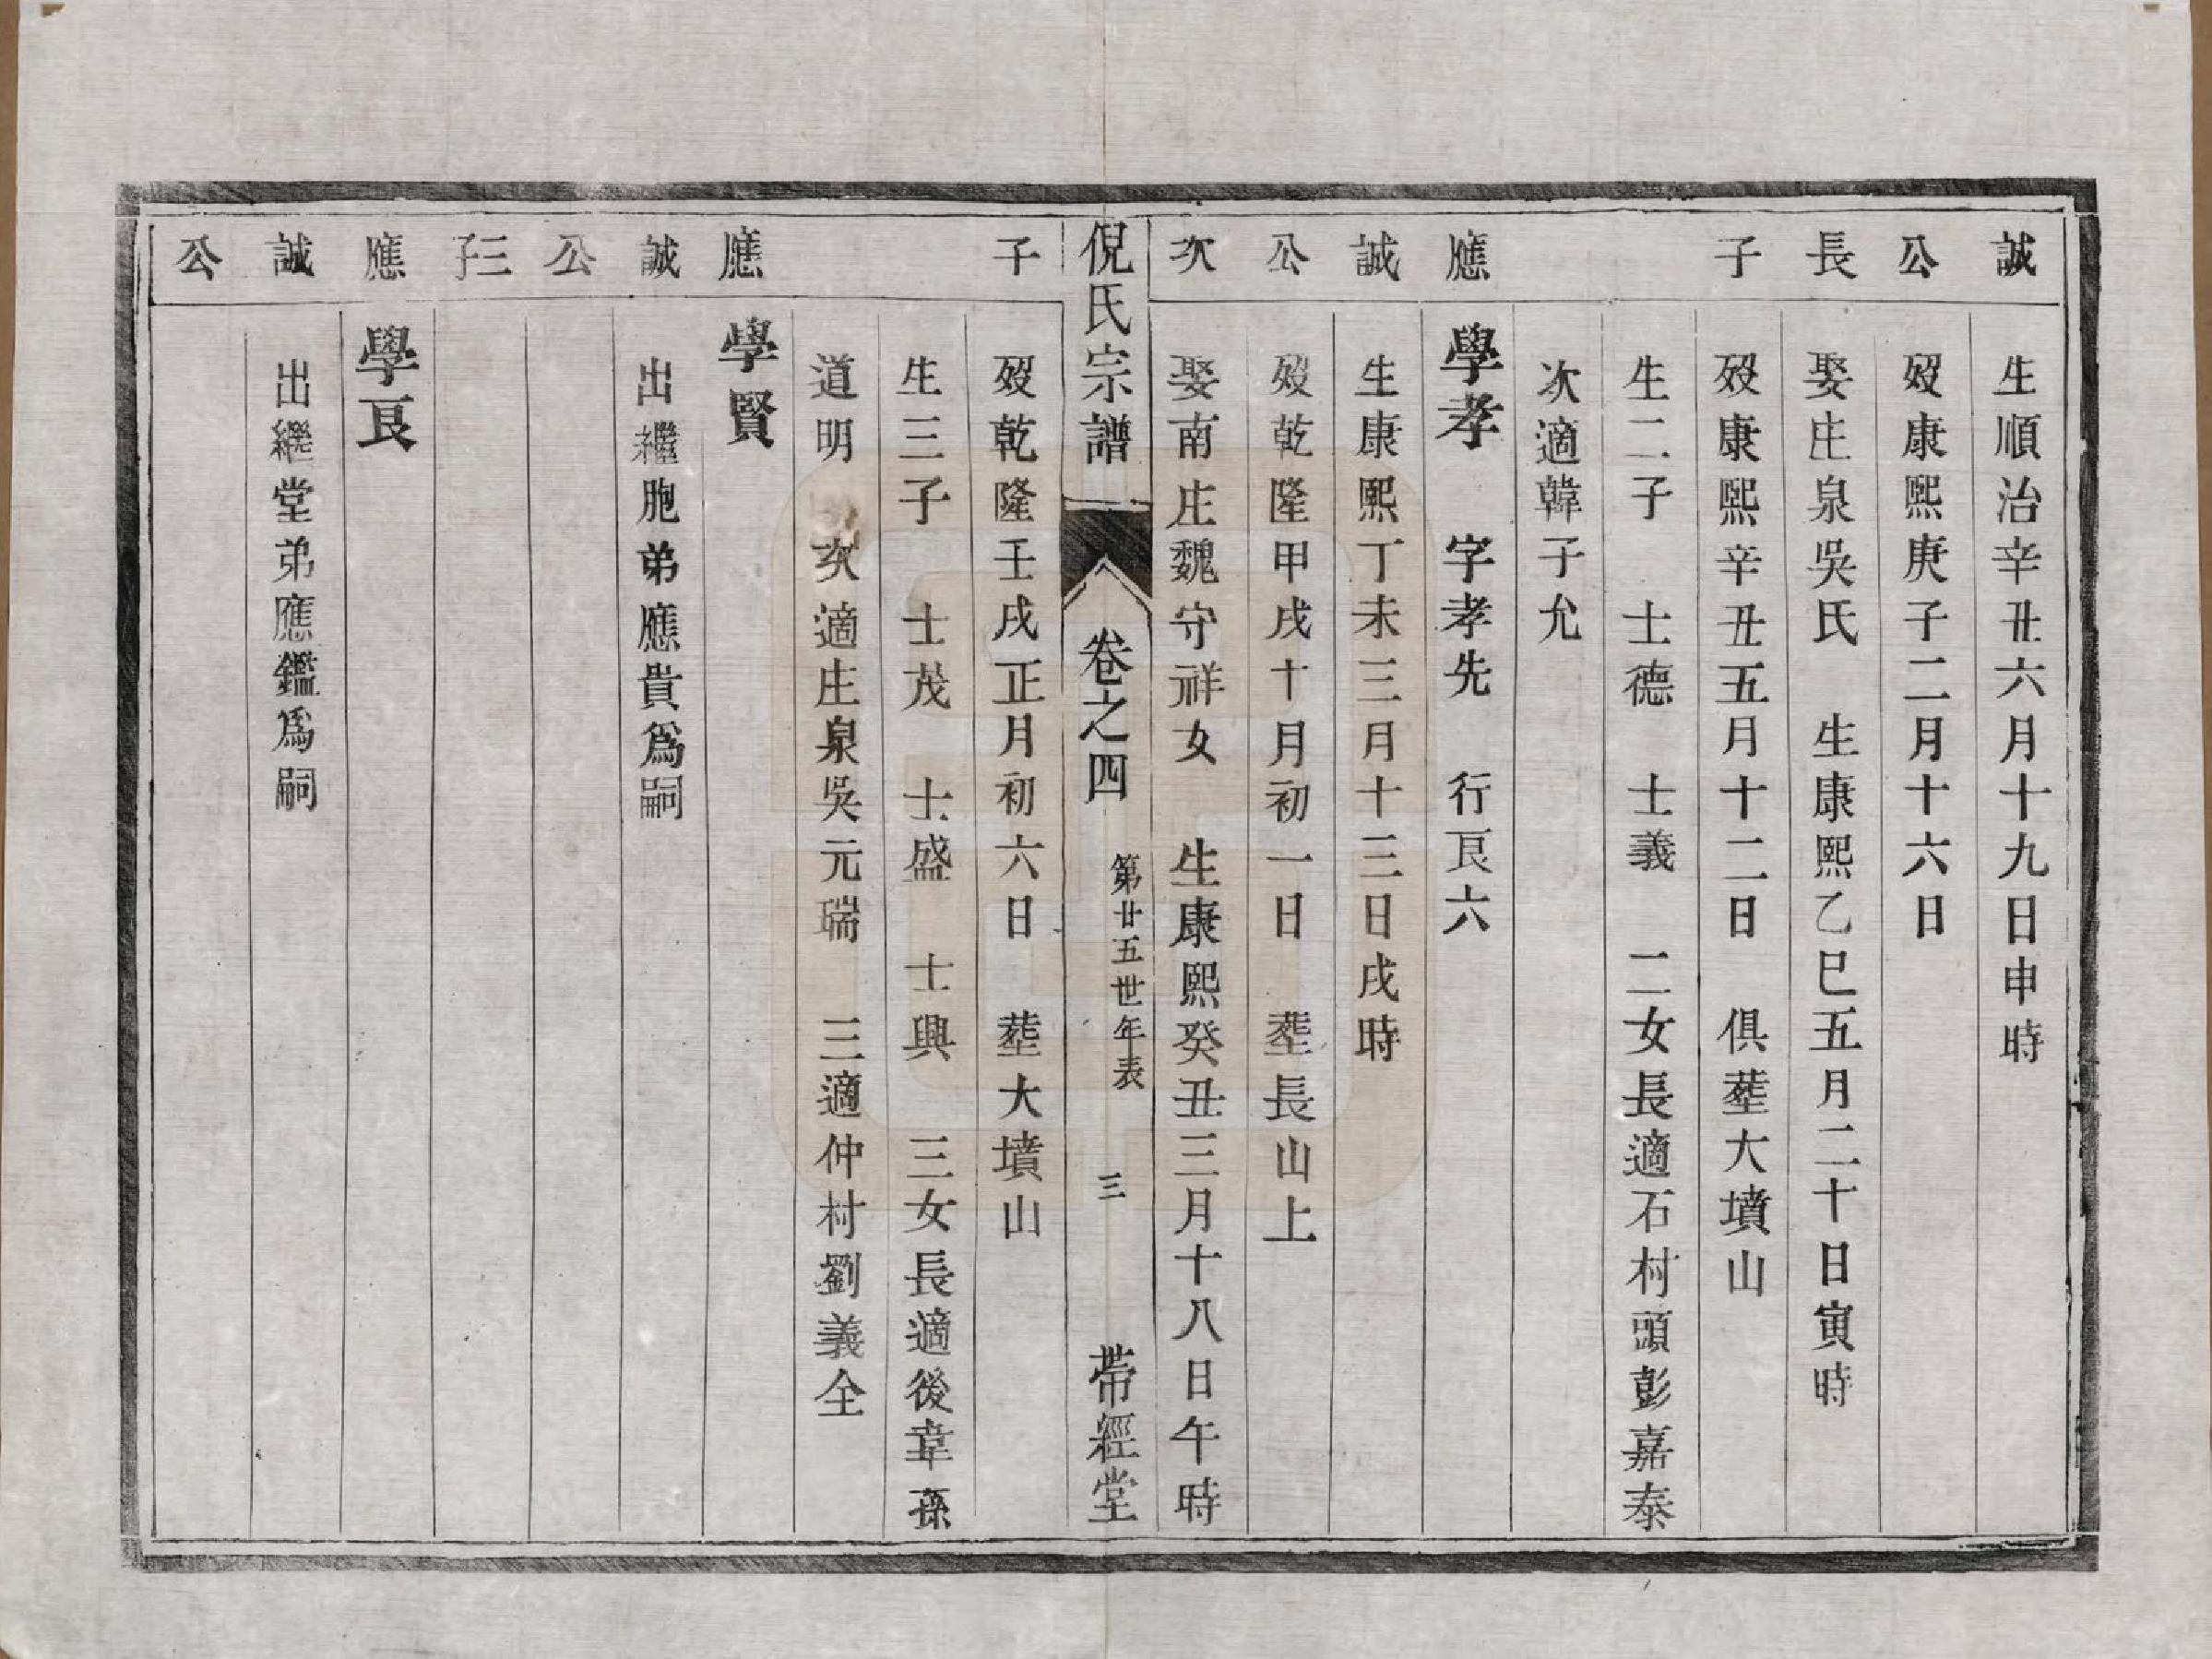 誠 生順治辛丑六月十九日申時
公 歿康熙庚子二月十六日
長 娶庄泉吳氏 生康熙乙巳五月二十日寅時
子 歿康熙辛丑五月十二日 俱塟大墳山
生二子 士德 士義 二女長適石村頭彭嘉泰
次適韓子允
應 學孝 字孝先 行艮六
誠 生康熙丁未三月十三日戌時
公 歿乾隆甲戌十月初一日 塟長山上
次 娶南庄魏守祥女 生康熙癸丑三月十八日午時
倪氏宗譜 卷之四 第廿五世年表 三 帶經堂
子 歿乾隆壬戌正月初六日 塟大墳山
生三子 士茂 士盛 士興 三女長適後韋孫
道明 次適庄泉吳元瑞 三適仲村劉義全
應 學賢
誠 出繼胞弟應貴爲嗣
公
三子
應 學艮
誠 出繼堂弟應鑑爲嗣
公